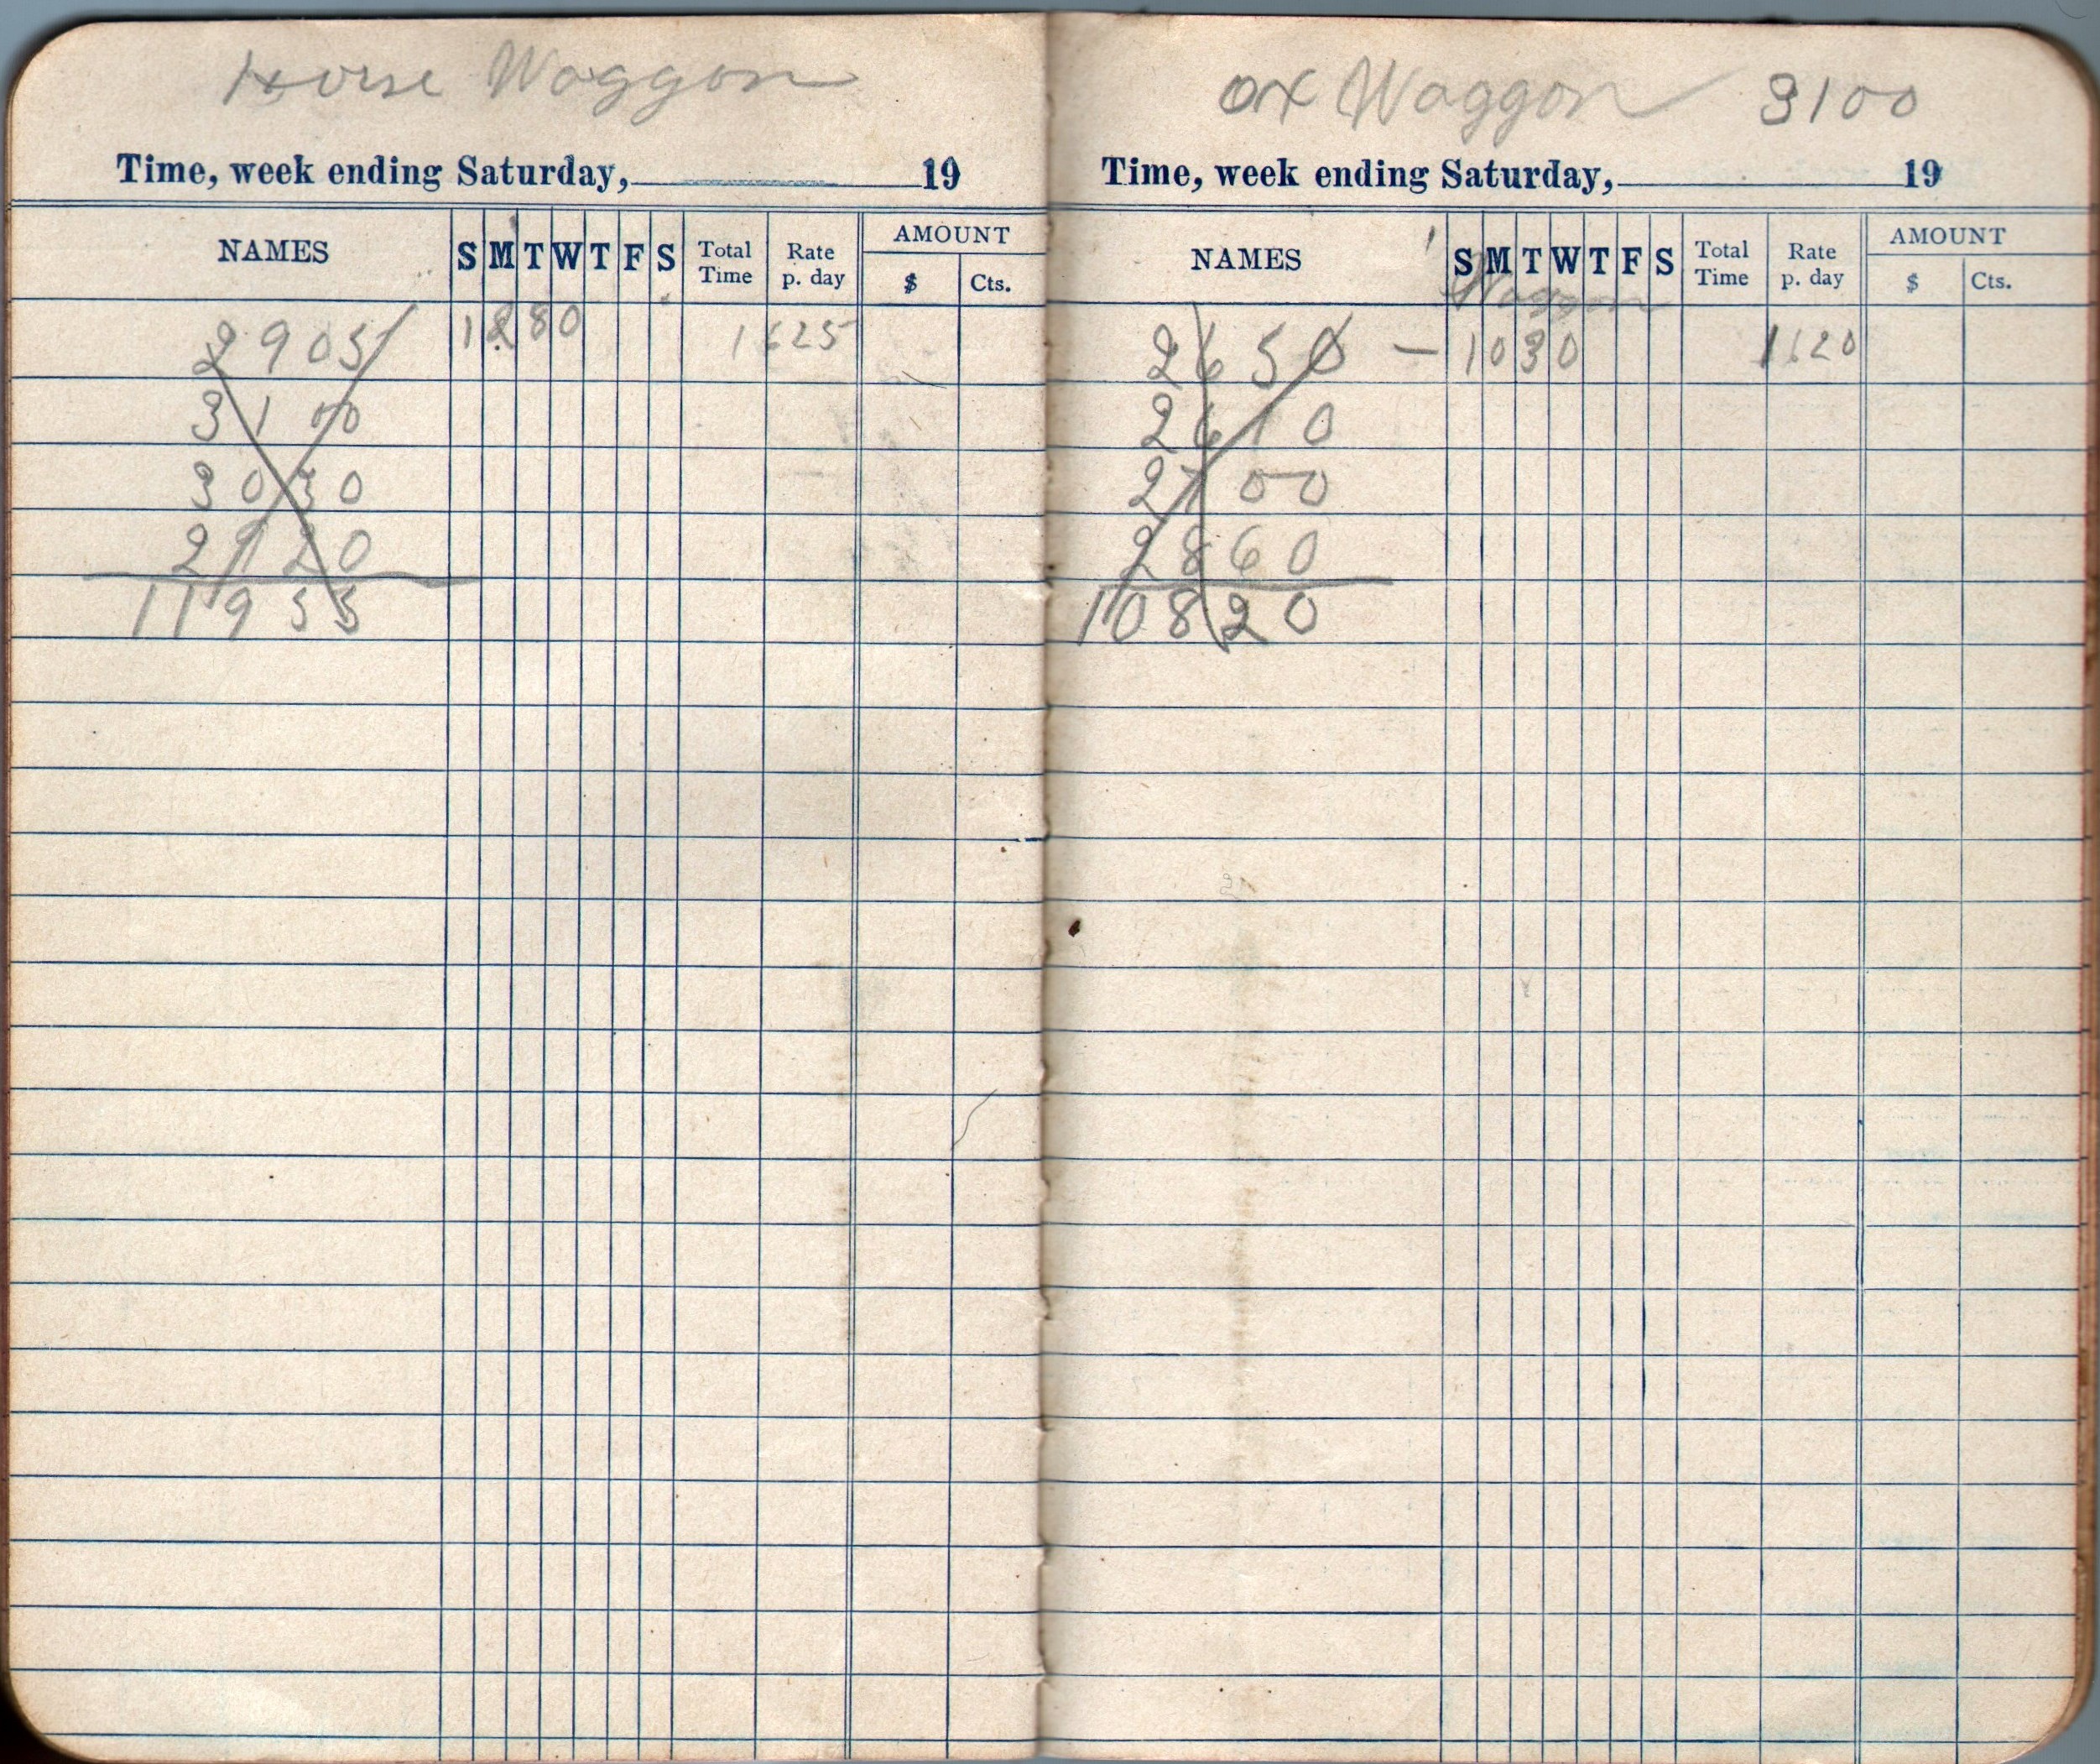 Horse Waggon
Time, week ending Saturday, 19
NAMES S M T W T F S Total Time Rate p. day AMOUNT $ Cts.
2905 1280 1625
3100
3030
2920
11955
Ox Waggon 3100
Time, week ending Saturday, 19
NAMES S M T W T F S Total Time Rate p. day AMOUNT $ Cts.
Waggon
2650 — 1030 1620
2610
2700
2860
10820